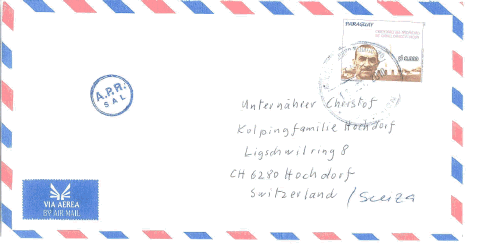 PARAGUAY
A.P.R.
SAL
Unternährer Christof
Kolpingfamilie Hochdorf
Ligschwilring 8
CH 6280 Hochdorf
Switzerland / Suiza
VIA AEREA
BY AIR MAIL